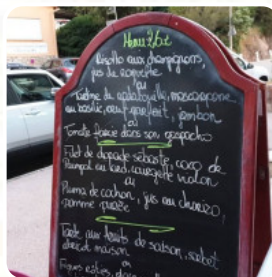 Menu 26€
Risotto aux champignons,
jus de roquette
ou
Tartine de ratatouille, mascarpone
au basilic, œuf parfait, jambon
ou
Tomate farcie dans son gaspacho
Filet de dorade sébaste, coco de
Paimpol au lard, courgette violon
ou
Pluma de cochon, jus au chorizo,
pomme purée
Tarte aux fruits de saison, sorbet
abricot maison
ou
Figues rôties,